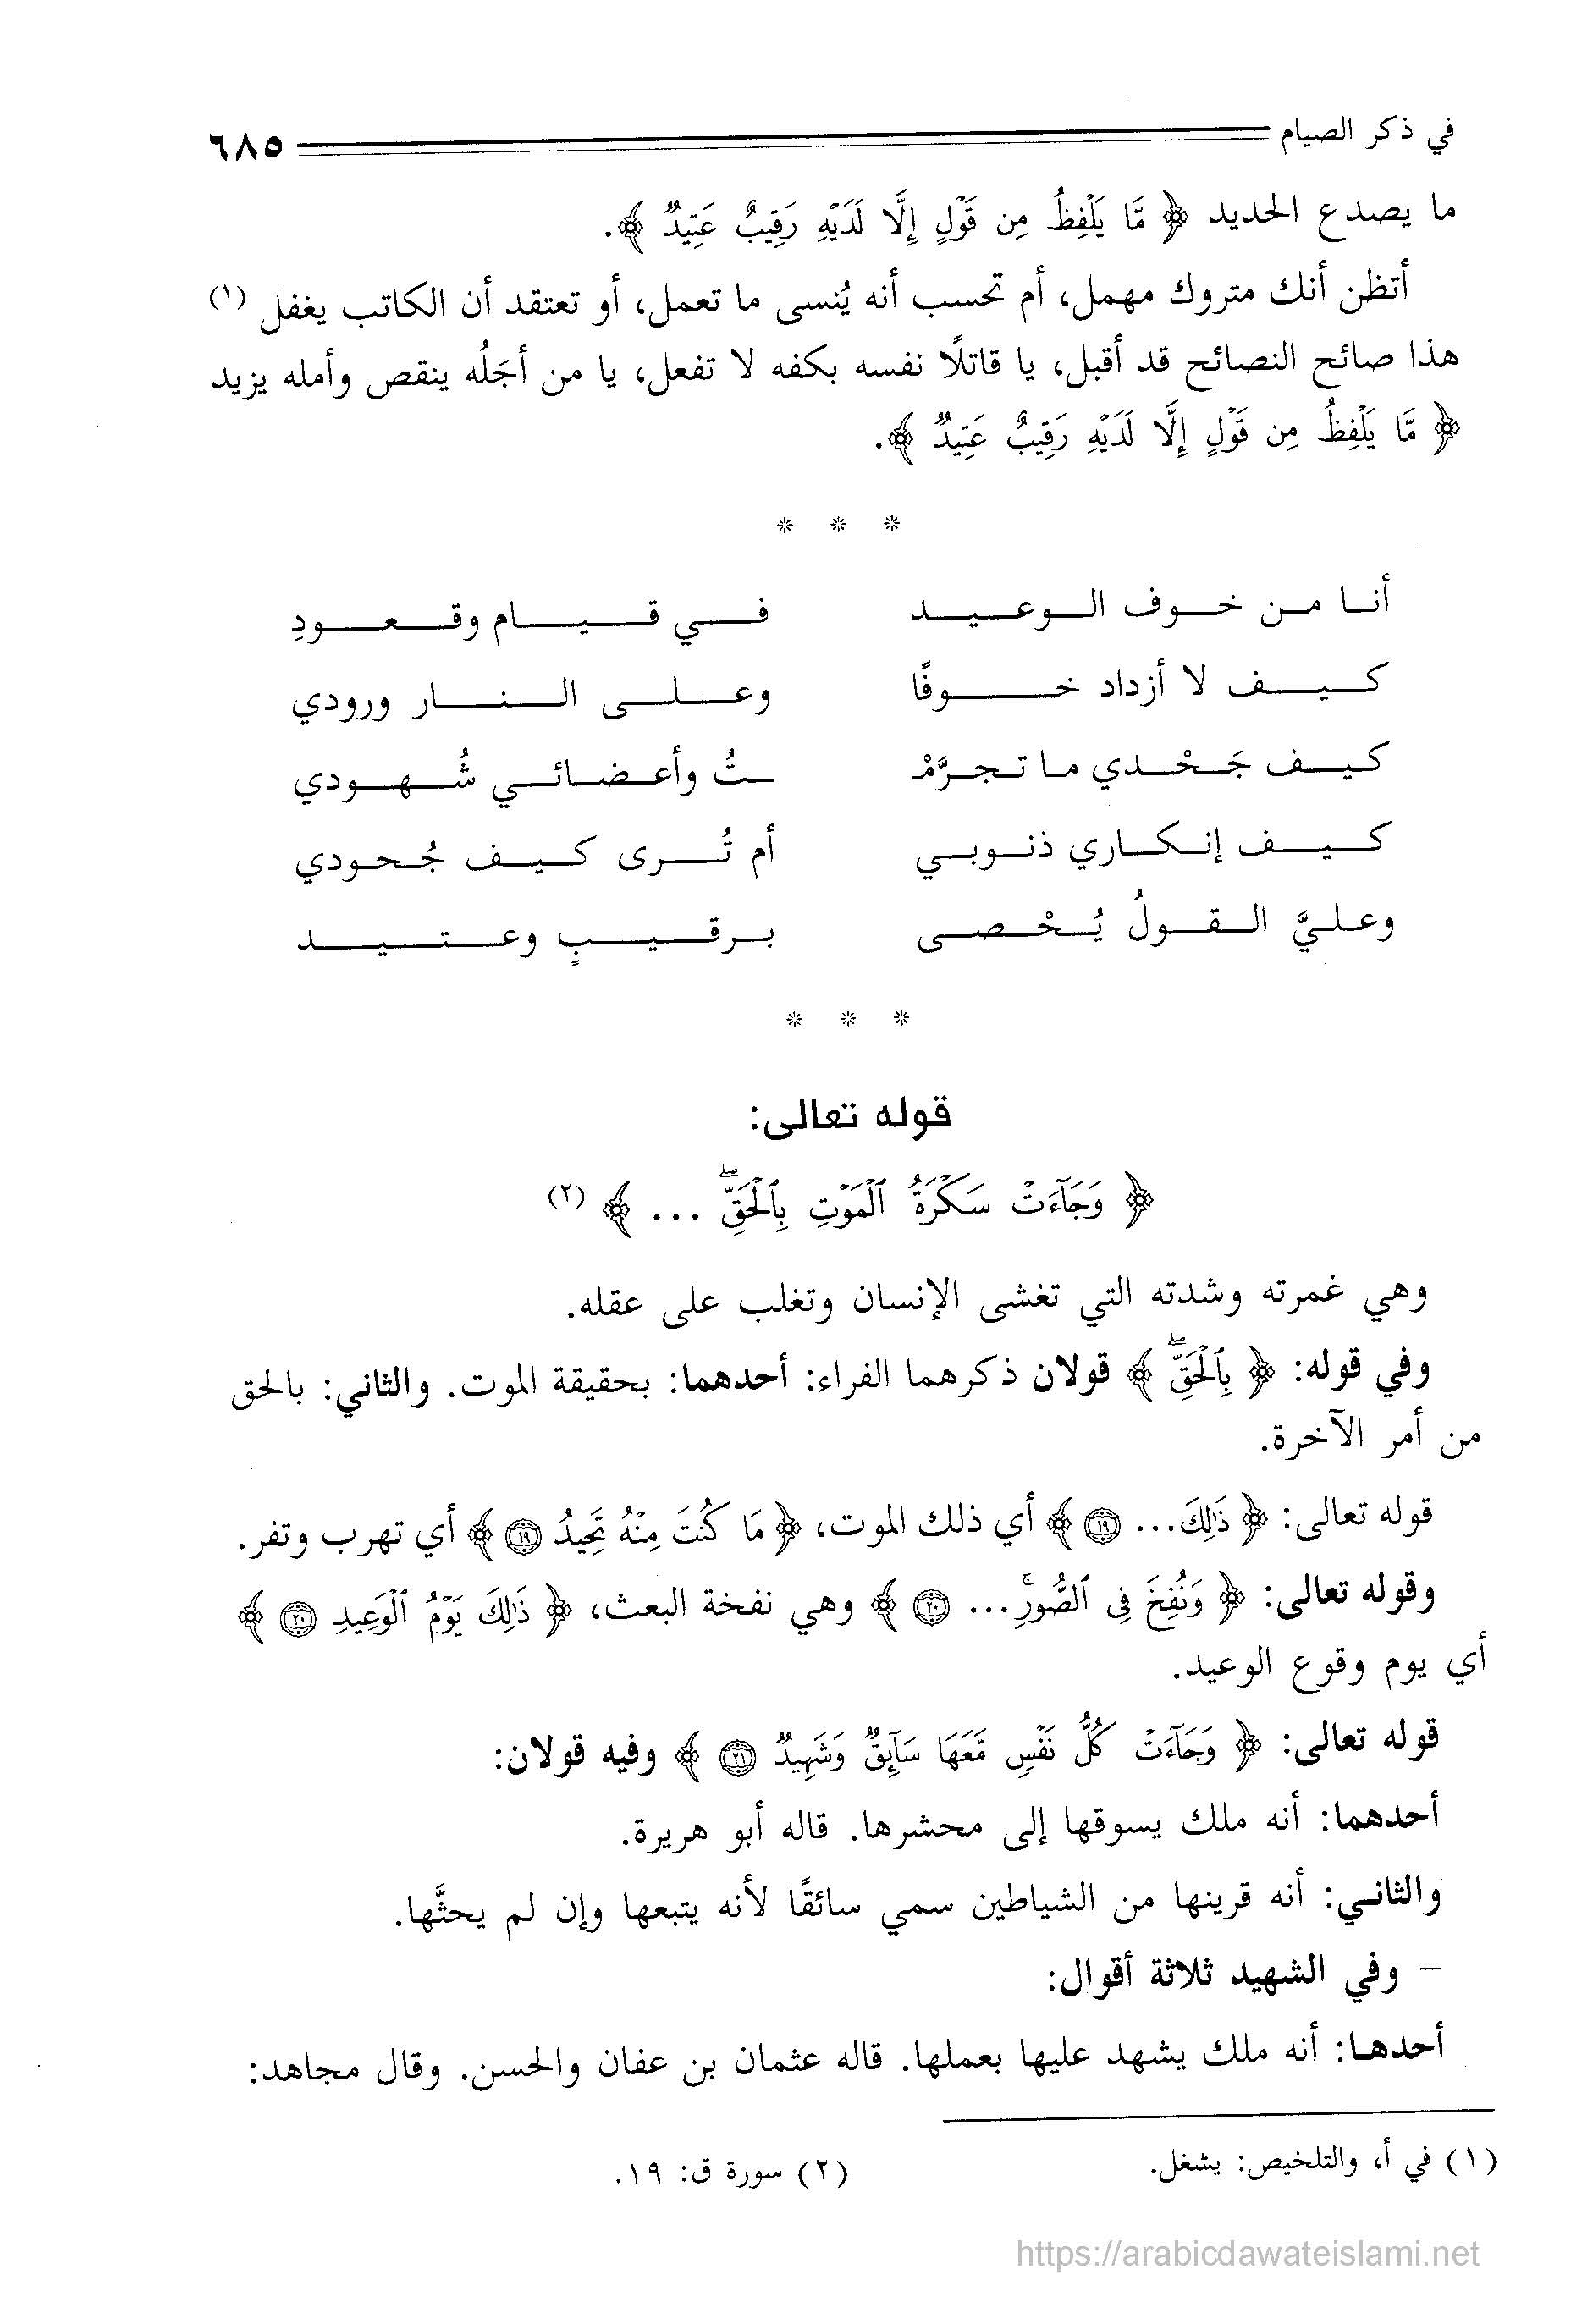 في ذكر الصيام ٦٨٥
ما يصدع الحديد ﴿ مَّا يَلْفِظُ مِن قَوْلٍ إِلَّا لَدَيْهِ رَقِيبٌ عَتِيدٌ ﴾.
أتظن أنك متروك مهمل، أم تحسب أنه يُنسى ما تعمل، أو تعتقد أن الكاتب يغفل (١)
هذا صائح النصائح قد أقبل، يا قاتلًا نفسه بكفه لا تفعل، يا من أجَلُه ينقص وأمله يزيد
﴿ مَّا يَلْفِظُ مِن قَوْلٍ إِلَّا لَدَيْهِ رَقِيبٌ عَتِيدٌ ﴾.
* * *
أنا من خوف الوعيد في قيام وقعودِ
كيف لا أزداد خوفًا وعلى النار ورودي
كيف جَحْدي ما تجرَّمْـ ـتُ وأعضائي شُهودي
كيف إنكاري ذنوبي أم تُرى كيف جُحودي
وعليَّ القولُ يُحْصى برقيبٍ وعتيد
* * *
قوله تعالى:
﴿ وَجَآءَتْ سَكْرَةُ ٱلْمَوْتِ بِٱلْحَقِّ ۖ ... ﴾ (٢)
وهي غمرته وشدته التي تغشى الإنسان وتغلب على عقله.
وفي قوله: ﴿ بِٱلْحَقِّ ۖ ﴾ قولان ذكرهما الفراء: أحدهما: بحقيقة الموت. والثاني: بالحق
من أمر الآخرة.
قوله تعالى: ﴿ ذَٰلِكَ... ١٩ ﴾ أي ذلك الموت، ﴿ مَا كُنتَ مِنْهُ تَحِيدُ ١٩ ﴾ أي تهرب وتفر.
وقوله تعالى: ﴿ وَنُفِخَ فِى ٱلصُّورِ ۚ ... ٢٠ ﴾ وهي نفخة البعث، ﴿ ذَٰلِكَ يَوْمُ ٱلْوَعِيدِ ٢٠ ﴾
أي يوم وقوع الوعيد.
قوله تعالى: ﴿ وَجَآءَتْ كُلُّ نَفْسٍ مَّعَهَا سَآئِقٌ وَشَهِيدٌ ٢١ ﴾ وفيه قولان:
أحدهما: أنه ملك يسوقها إلى محشرها. قاله أبو هريرة.
والثاني: أنه قرينها من الشياطين سمي سائقًا لأنه يتبعها وإن لم يحثَّها.
– وفي الشهيد ثلاثة أقوال:
أحدها: أنه ملك يشهد عليها بعملها. قاله عثمان بن عفان والحسن. وقال مجاهد:
(١) في أ، والتلخيص: يشغل. (٢) سورة ق: ١٩.
https://arabicdawateislami.net